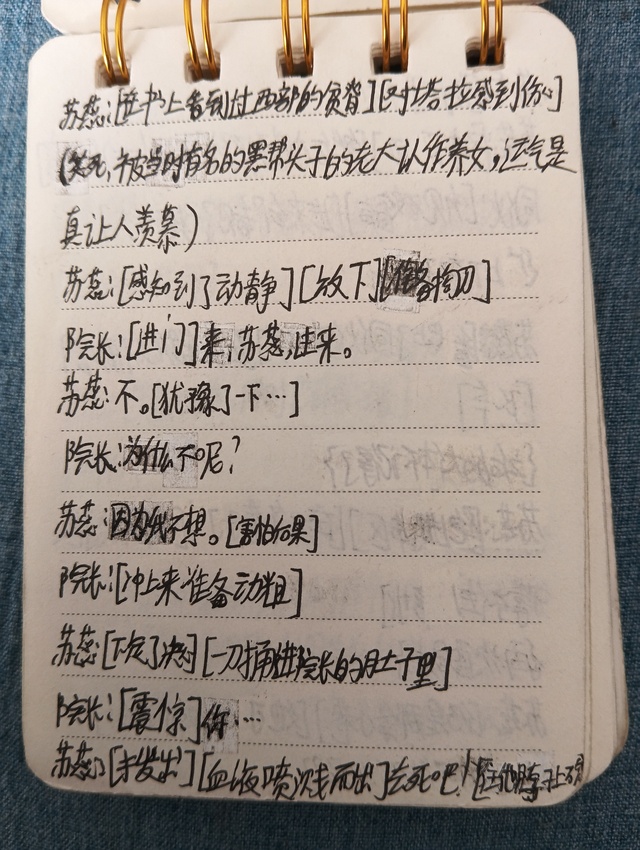 苏蕊:[在书上看到过西部的负脊][对塔拉感到伤心]
(笑死,被当时有名的黑帮头子的老大认作养女,运气是
真让人羡慕)
苏蕊:[感知到了动静][放下][刀]
院长:[进门]来,苏蕊,进来。
苏蕊:不。[犹豫了一下…]
院长:为什么不呢?
苏蕊:因为我不想。[害怕后果]
院长:[冲上来准备动粗]
苏蕊:[下定了决][一刀捅进院长的肚子里]
院长:[震惊]你…
苏蕊:[拔出][血液喷溅而出]去死吧!